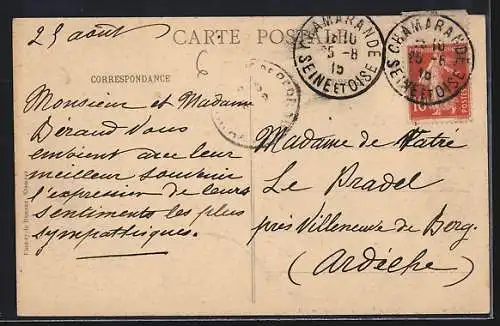 25 août
CARTE POSTALE
CORRESPONDANCE
CHAMARANDE
25-8
15
SEINE ET OISE
CHAMARANDE
25-8
15
SEINE ET OISE
POSTES
Monsieur et Madame
Béraud vous
envoient avec leur
meilleur souvenir
l'expression de leurs
sentiments les plus
sympathiques.
Madame de
Le Pradel
près Villeneuve de Berg.
(Ardèche)